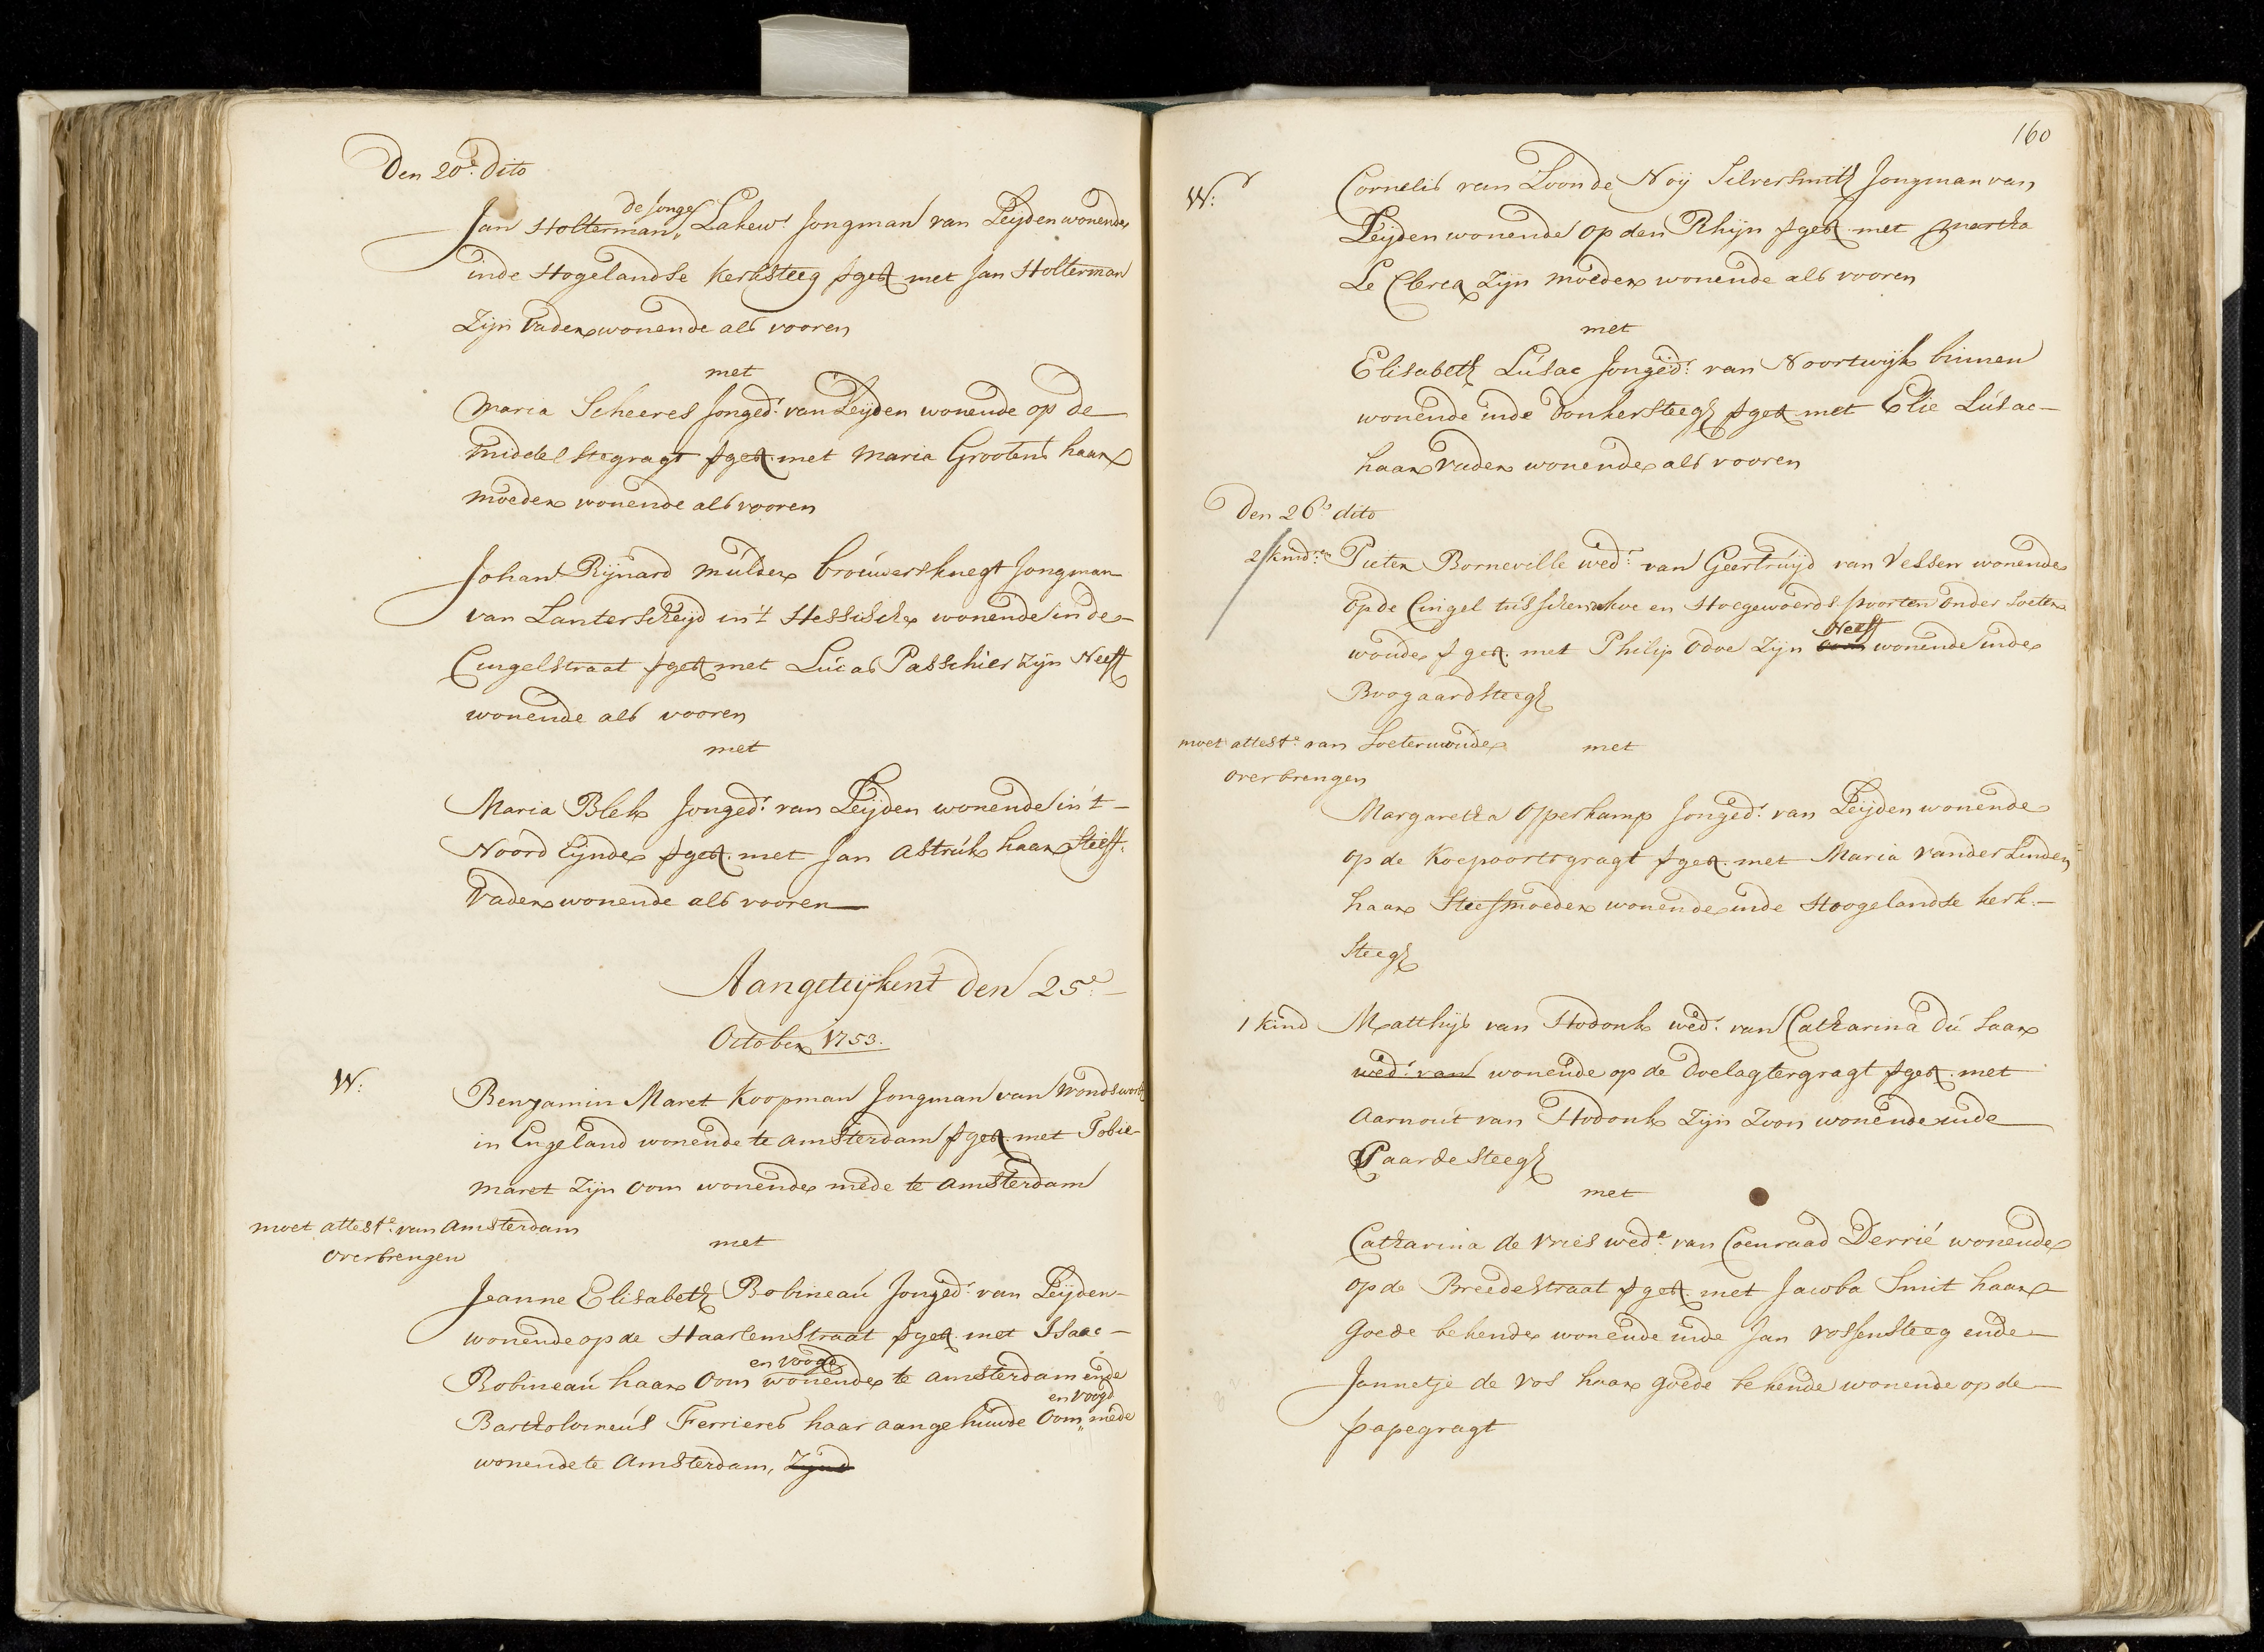 Den 20e. Dito
de Jonge
Jan Holterman „ Lakew:r Jongman van Leijden wonende
inde Hogelandse kerksteeg verget met Jan Holterman
Zijn Vader wonende als vooren
met
Maria Scheeres Jonged:r van Leijden wonende op de
middelstegragt verget met Maria Grootens haar
moeder wonende als vooren
Johan Rijnard Mulder brouwersknegt Jongman
van Lanterscheijd in't Hessische wonende in de
Cingelstraat verget met Lucas Passchier zijn Neeff
wonende als vooren
met
Maria Blek Jonged:r van Leijden wonende in 't
Noord Eijnde verget. met Jan Astruk haar Stieff-
Vader wonende als vooren
Aangeteijkent den 25e:
October 1753.
W:
Benjamin Maret Koopman Jongman van Wondsworth
in Engeland wonende te Amsterdam verget. met Tobie
Maret Zijn Oom wonende mede te Amsterdam
moet attest:e van Amsterdam
overbrengen
met
Jeanne Elisabeth Robineau Jonged:r van Leijden
wonende op de Haarlemstraat verget. met Isaac
en voogd
Robineau haar Oom wonende te Amsterdam ende
en voogd
Bartholomeus Ferrieres haar aangehuwde Oom „ mede
wonende te Amsterdam, Zijnd
160
W:
Cornelis van Loon de Noij Silversmith Jongman van
Leijden wonende op den Rhijn verget. met Martha
Le Clercq Zijn moeder wonende als vooren
met
Elisabeth Lusac Jonged:r van Noortwijk binnen
wonende inde Donkersteegh verget met Elie Lusac
haar vader wonende als vooren
Den 26e dito
2 kind:ren Pieter Borneville wed:r van Geertruijd van Velsen wonende
op de Cingel tusschen Koe en Hoegewoerds poorten onder Soeter
Neeff
woude verget. met Philip Odoe Zijn Oom wonende inde
Boogaardsteegh
moet attest:e van Soeterwoude
overbrengen
met
Margaretha Opperkamp Jonged:r van Leijden wonende
op de Koepoortsgragt verget. met Maria vander Linden
haar Steefmoeder wonende inde Hoogelandse kerk-
steegh
1 kind Matthijs van Hodonk wed:r van Catharina du Saar
wed:r van wonende op de Ovelagtergragt verget. met
Aarnout van Hodonk Zijn Zoon wonende inde
Paardesteegh
met
Catharina de Vries wed:e van Coenraad Derrié wonende
op de Breedestraat verget. met Jacoba Smit haar
Goede bekende wonende inde Jan Vossensteeg ende
Jannetje de Vos haar goede bekende wonende op de
papegragt